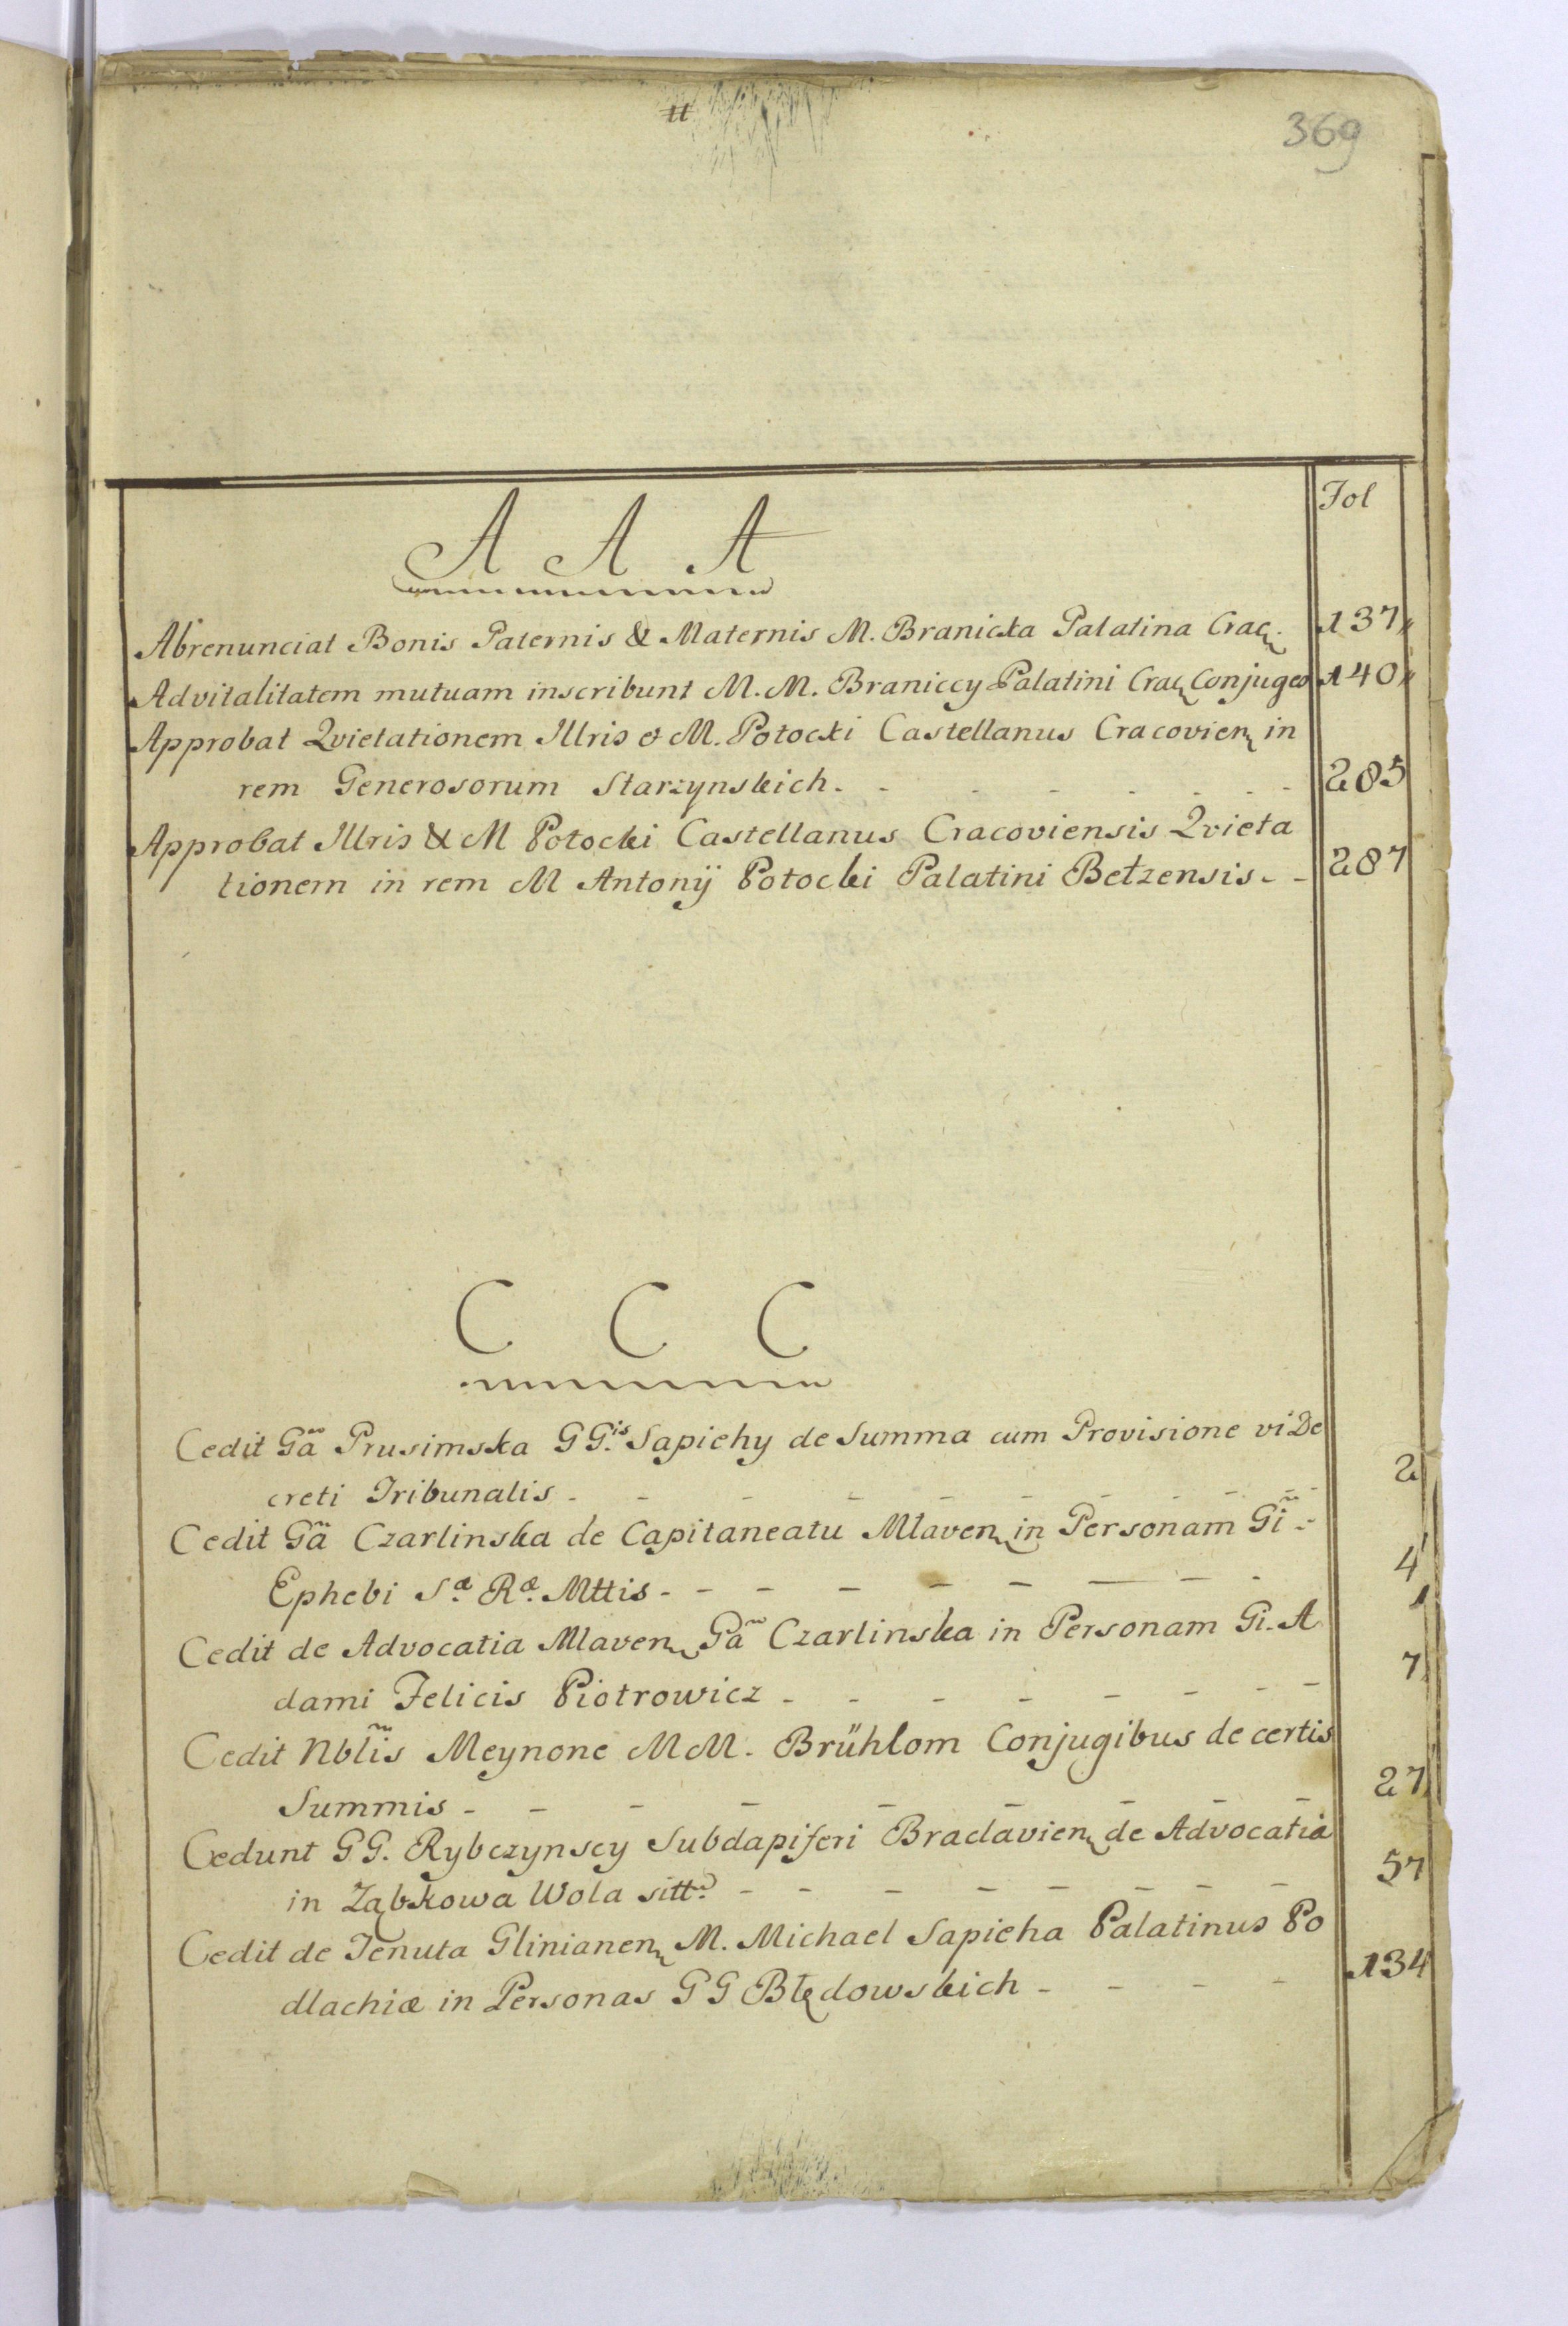 369
Fol
A A A
Abrenunciat Bonis Paternis & Maternis M. Branicka Palatina Crac. 137
Advitalitatem mutuam inscribunt M. M. Braniccy Palatini Crac Conjuges 140
Approbat Qvietationem Illris & M. Potocki Castellanus Cracovien in
rem Generosorum Starzynskich. - - - - - - 285
Approbat Illris & M Potocki Castellanus Cracoviensis Qvieta
tionem in rem M Antonij Potocki Palatini Bełzensis - - 287
C C C
Cedit Gã Prusimska G G.is Sapiehy de Summa cum Provisione vi De
creti Tribunalis - - - - - - - - - 2
Cedit Gã Czarlinska de Capitaneatu Mlaven in Personam Gĩ -
Ephebi S.æ R.æ Mttis - - - - - - - - - 4
Cedit de Advocatia Mlaven Gã Czarlinska in Personam Gi. A
dami Felicis Piotrowicz - - - - - - - - 7
Cedit Nblĩs Meynone M M. Brühlom Conjugibus de certis
Summis - - - - - - - - - 27
Cedunt G G. Rybczynscy Subdapiferi Braclavien de Advocatia
in Ząbkowa Wola sitt. - - - - - - - - 57
Cedit de Tenuta Glinianen M. Michael Sapieha Palatinus Po
dlachiæ in Personas G G Błędowskich - - - - 134